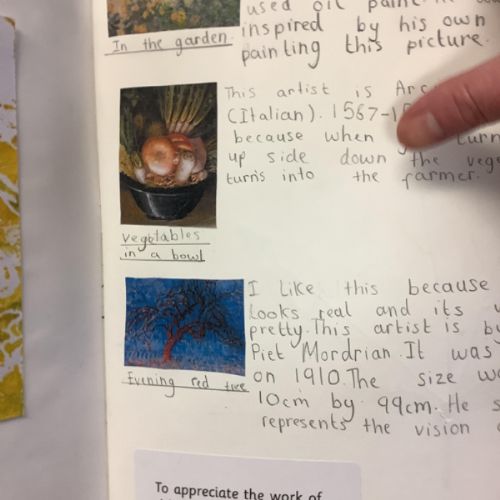 used oil paint. He
In the garden.
inspired by his own
painting this picture.
This artist is Arc
(Italian). 1567-1
because when turn
up side down the vege
turns into the farmer.
vegetables
in a bowl
I Like this because
Looks real and its
pretty. This artist is b
Piet Mordrian. It was
on 1910. The size wa
10cm by 99cm. He s
represents the vision
Evening red tree
To appreciate the work of